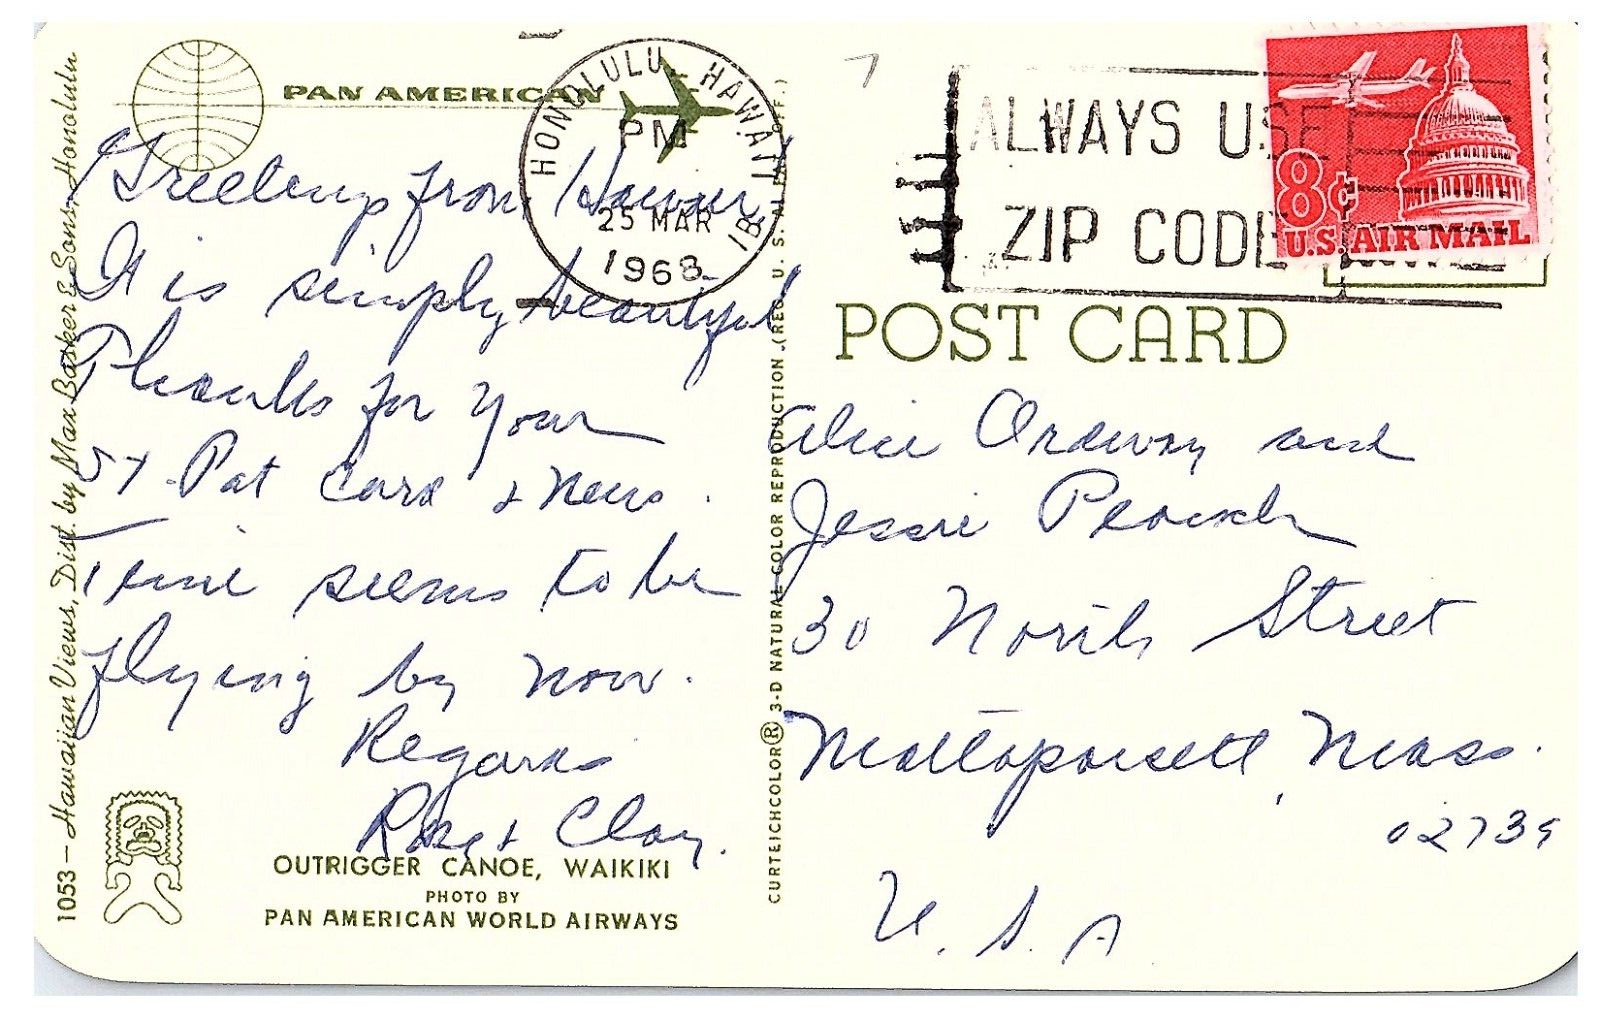 PAN AMERICAN
HONOLULU, HAWAII
PM
25 MAR
1968
1B
ALWAYS USE
ZIP CODE
8¢
U.S. AIR MAIL
POST CARD
Greetings from Hawaii
It is simply beautiful
Thanks for your
St Pat Card + News.
Time seems to be
flying by now.
Regards
+ Clay.
Alice Ordway and
Jessie
30 North Street
Mattapoisett Mass.
02739
U. S. A
OUTRIGGER CANOE, WAIKIKI
PHOTO BY
PAN AMERICAN WORLD AIRWAYS
1053 – Hawaiian Views, Dist. by Max Basker & Sons, Honolulu
CURTEICHCOLOR® 3-D NATURAL COLOR REPRODUCTION (REG. U. S. A. PAT. OFF.)